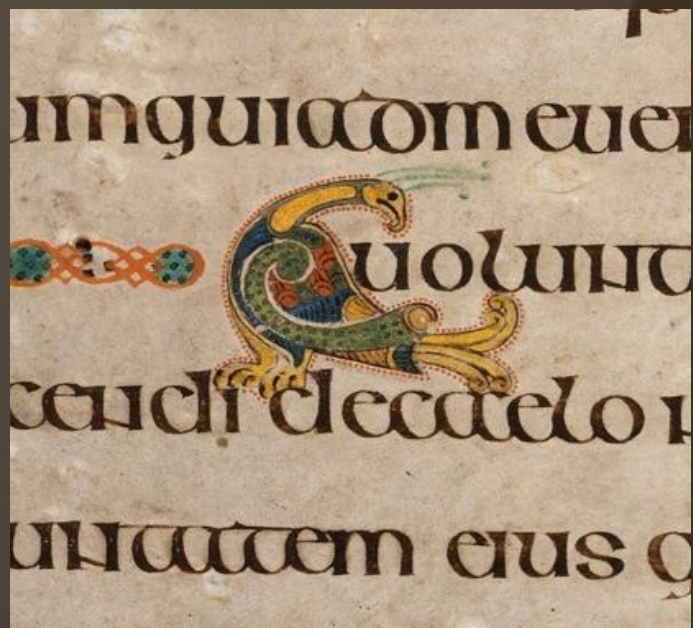 umquiadm euen
Euolunt
cendi decaelo n
untatem eius q